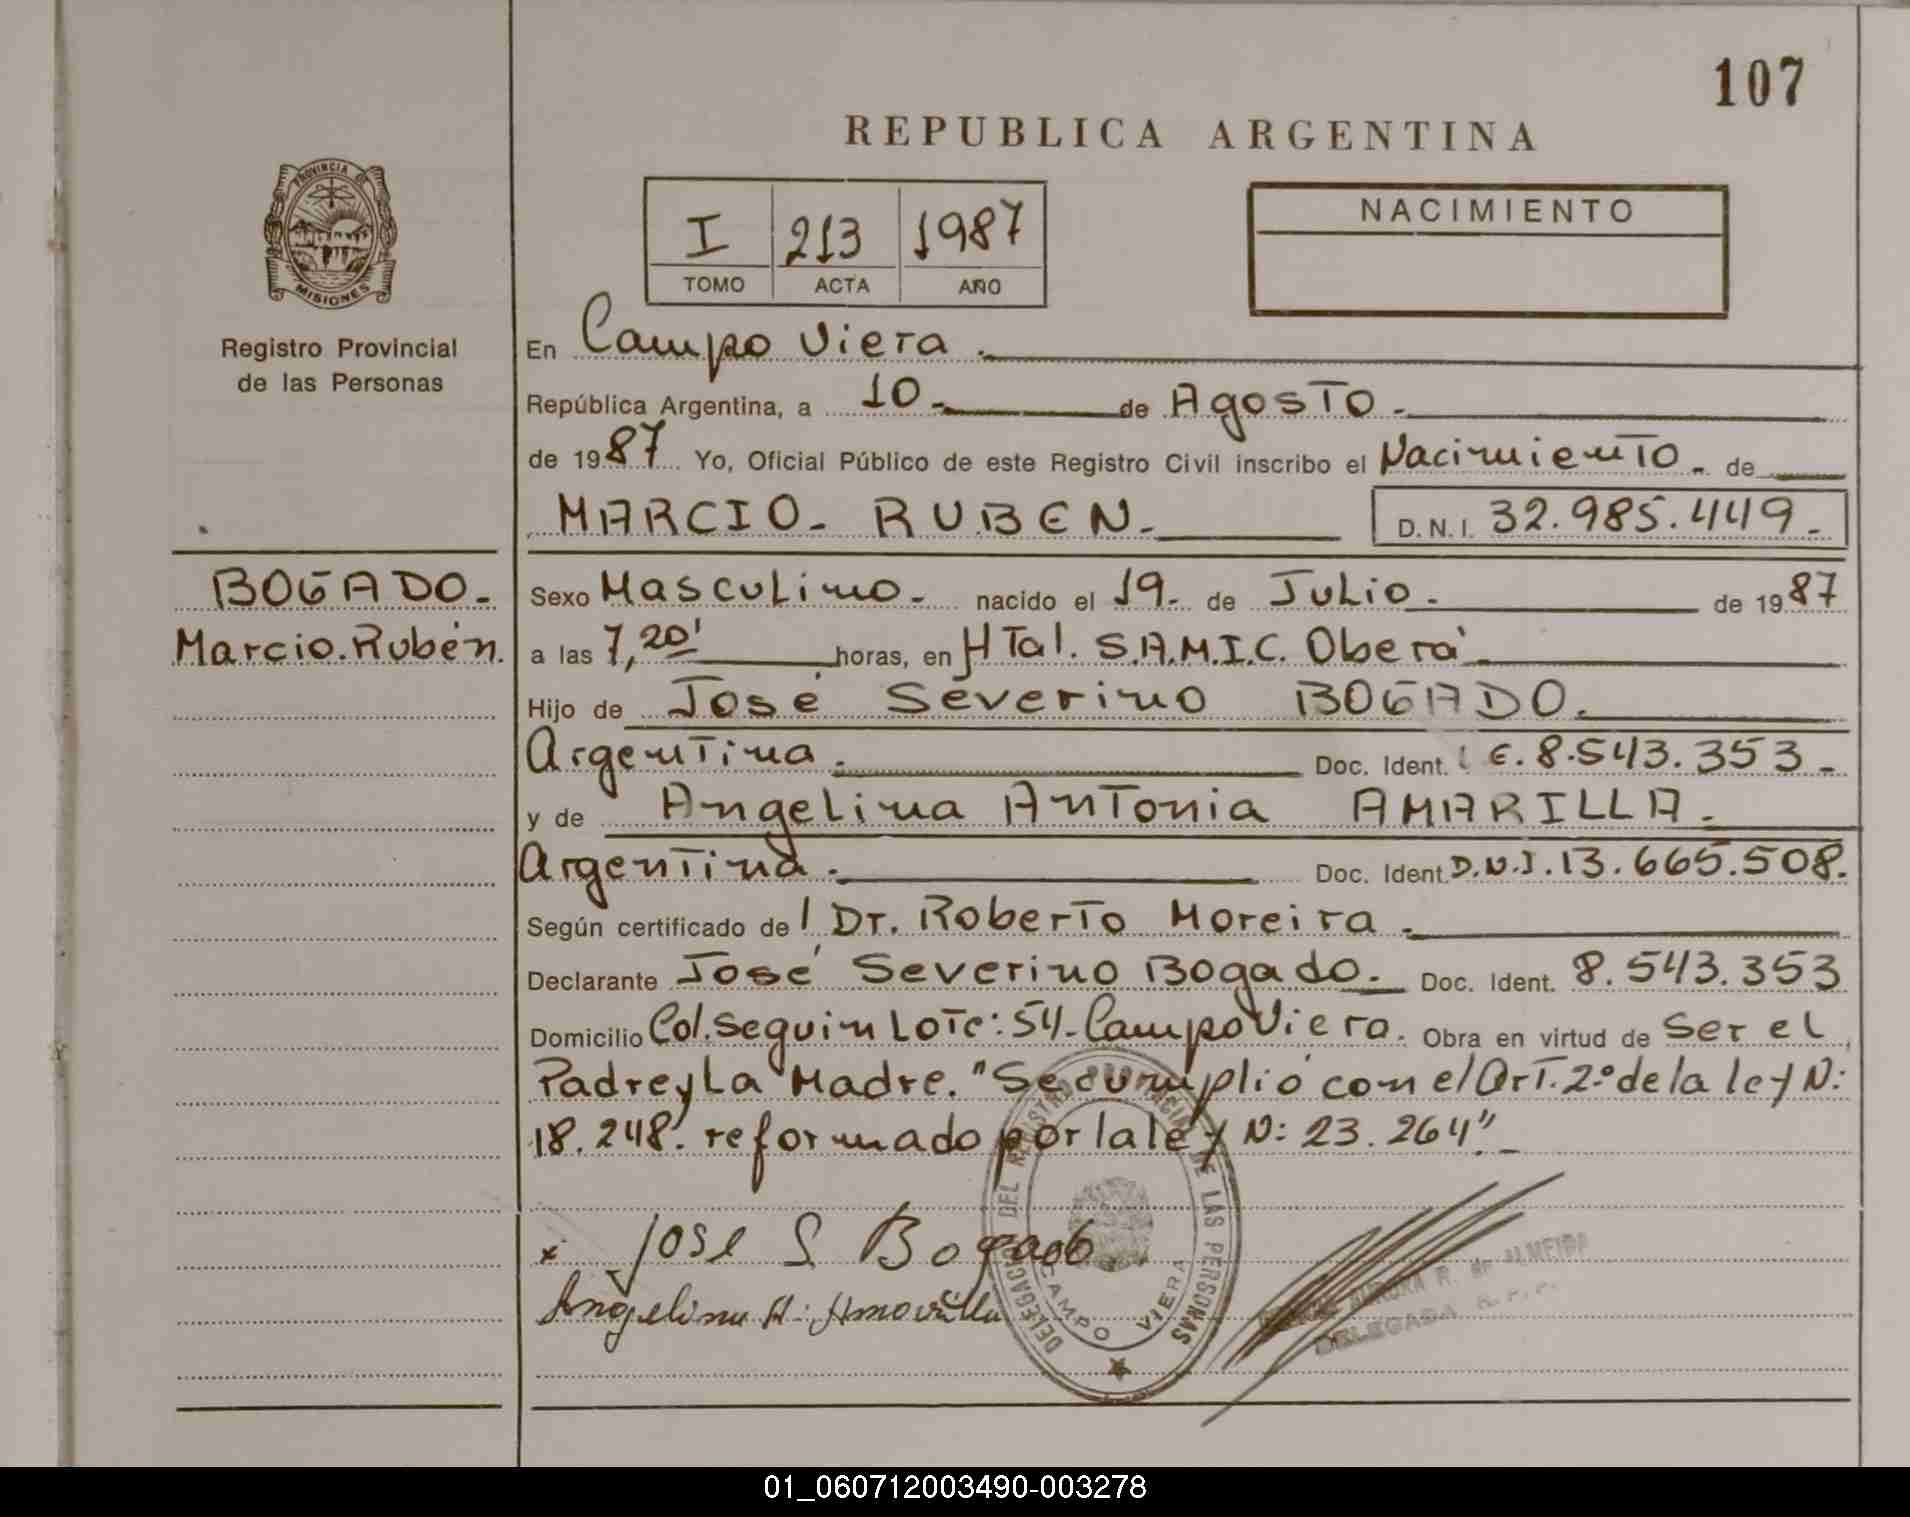 107
REPUBLICA ARGENTINA
PROVINCIA DE
MISIONES
Registro Provincial
de las Personas
I 213 1987
TOMO ACTA AÑO
NACIMIENTO
En Campo Viera.
República Argentina, a 10- de Agosto.
de 1987 Yo, Oficial Público de este Registro Civil inscribo el Nacimiento- de
MARCIO- RUBEN- D.N.I. 32.985.449-
BOGADO-
Marcio.Rubén.
Sexo Masculino- nacido el 19- de Julio. de 1987
a las 7,20' horas, en HTal. S.A.M.I.C. Oberá
Hijo de José Severino BOGADO.
Argentina. Doc. Ident. L E. 8.543.353-
y de Angelina Antonia AMARILLA.
Argentina. Doc. Ident. D.N.I. 13.665.508.
Según certificado de l Dr. Roberto Moreira.
Declarante José Severino Bogado. Doc. Ident. 8.543.353
Domicilio Col.Seguin Lote: 54-Campo Viera. Obra en virtud de Ser el
Padre y La Madre. "Se cumplió con el Art. 2° de la ley N:
18.248. reformado por la ley N: 23.264"-
x Jose S Bogado
Angelina A. Amarilla
DELEGACION DEL REGISTRO PROVINCIAL DE LAS PERSONAS
CAMPO VIERA
AURORA R. DE ALMEIDA
DELEGADA R.P.P.
01_060712003490-003278